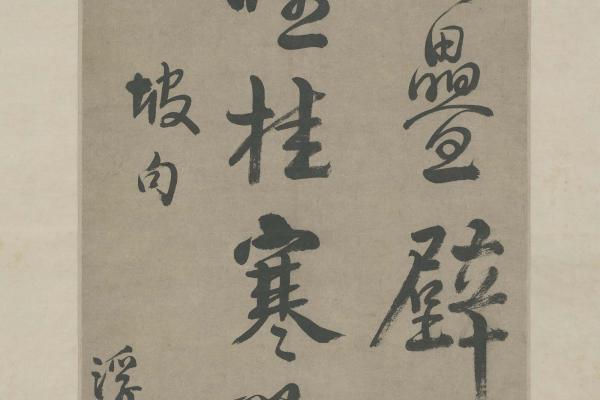 疊壁
桂寒
坡句